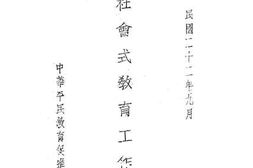 民國二十二年九月
社會式教育工作
中華平民教育促進